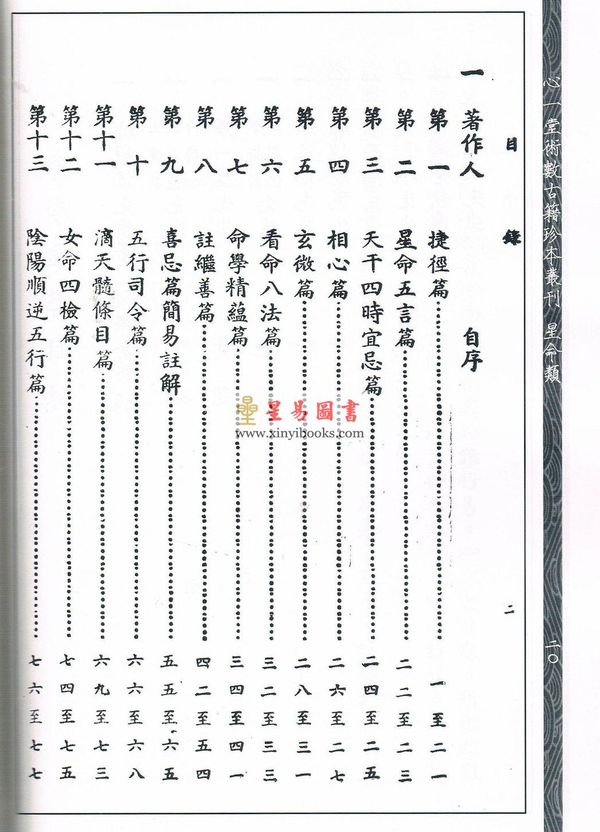 心一堂術數古籍珍本叢刊 星命類
二〇
目錄
二
一 著作人 自序
第一 捷徑篇 一至二一
第二 星命五言篇 二二至二三
第三 天干四時宜忌篇 二四至二五
第四 相心篇 二六至二七
第五 玄微篇 二八至三一
第六 看命八法篇 三二至三三
第七 命學精蘊篇 三四至四一
第八 註繼善篇 四二至五四
第九 喜忌篇簡易註解 五五至六五
第十 五行司令篇 六六至六八
第十一 滴天髓條目篇 六九至七三
第十二 女命四檢篇 七四至七五
第十三 陰陽順逆五行篇 七六至七七
星易圖書
www.xinyibooks.com